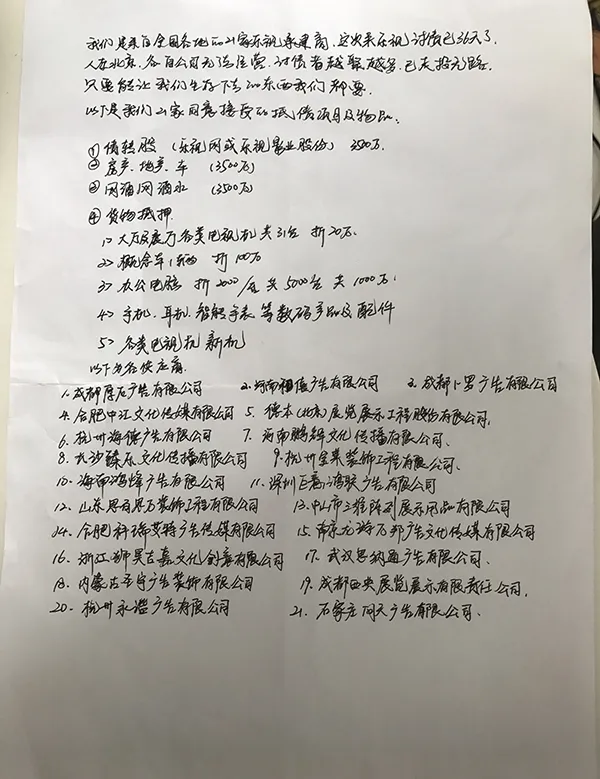 我们是来自全国各地的21家乐视承建商,这次来乐视讨债已36天了,
人在北京,各自公司无法经营,讨债者越聚越多,已走投无路,
只要能让我们生存下去的东西我们都要。
以下是我们21家同意接受的抵债项目及物品:
① 债转股 (乐视网或乐视影业股份) 3500万.
② 房产、地产、车 (3500万)
③ 网酒网酒水 (3500万)
④ 货物抵押
1> 大厅及展厅各类电视机共31台 折20万.
2> 概念车1辆 折100万
3> 办公电脑 折2000/台 共5000台 共1000万.
4> 手机、耳机、智能手表等数码产品及配件
5> 各类电视机新机
以下为各供应商:
1. 成都厚石广告有限公司 2. 河南福值广告有限公司 3. 成都卜罗广告有限公司
4. 合肥中江文化传媒有限公司 5. 德本(北京)展览展示工程股份有限公司,
6. 杭州海德广告有限公司 7. 河南鹏辉文化传播有限公司、
8. 长沙臻乐文化传播有限公司 9. 杭州金莱装饰工程有限公司、
10. 海南鸿烽广告有限公司 11. 深圳巨嘉鸿联广告有限公司
12. 山东思百思万装饰工程有限公司 13. 中山市三维陈列展示用品有限公司、
14. 合肥科瑞艾特广告传媒有限公司 15. 南京龙游万邦广告文化传媒有限公司
16. 浙江狮昊吉嘉文化创意有限公司 17. 武汉思纳通广告有限公司、
18. 内蒙古圣宇广告装饰有限公司 19. 成都西央展览展示有限责任公司,
20. 杭州永谐广告有限公司 21. 石家庄同天广告有限公司、